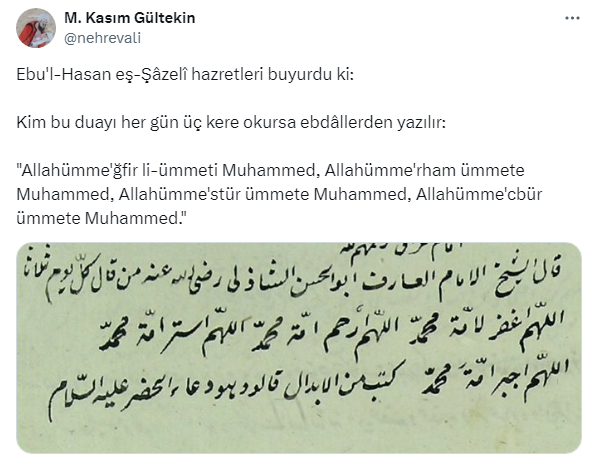 M. Kasım Gültekin
@nehrevali
Ebu'l-Hasan eş-Şâzelî hazretleri buyurdu ki:
Kim bu duayı her gün üç kere okursa ebdâllerden yazılır:
"Allahümme'ğfir li-ümmeti Muhammed, Allahümme'rham ümmete
Muhammed, Allahümme'stür ümmete Muhammed, Allahümme'cbür
ümmete Muhammed."
قال الشيخ الامام العارف ابو الحسن الشاذلى رضى الله عنه من قال كل يوم ثلاثا
اللهم اغفر لامة محمد اللهم ارحم امة محمد اللهم استر امة محمد
اللهم اجبر امة محمد كتب من الابدال قالوا وهو دعاء الخضر عليه السلام